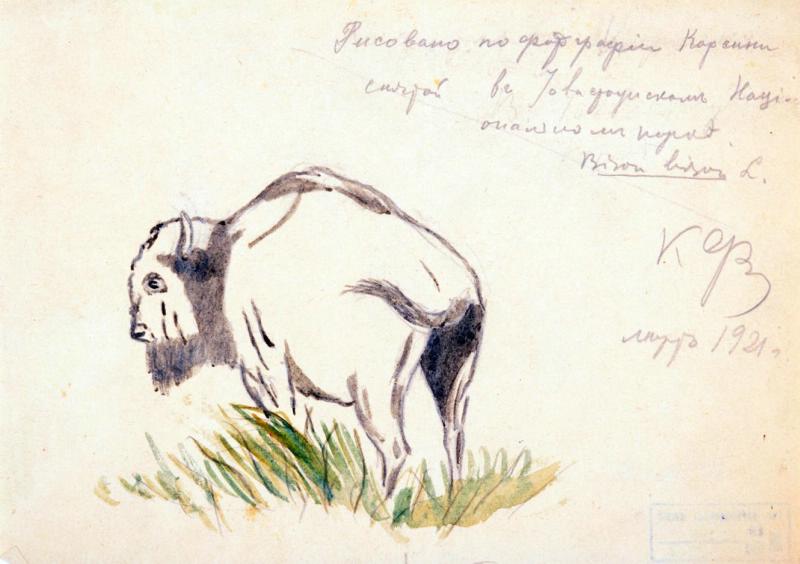 Рисовано по фотографіи Корсини
снятой въ Іеллостоунскомъ Наці-
ональномъ парке.
Bison bison L.
КФ
мартъ 1921 г.